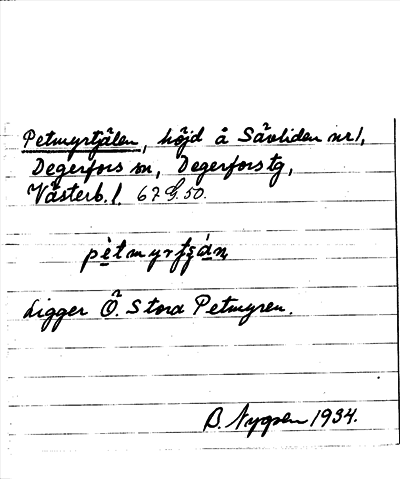 Petmyrtjälen, höjd å Sävliden nr 1,
Degerfors sn, Degerfors tg,
Västerb. l. 67 G. 50.
pètmyrfʂán
Ligger Ö. Stora Petmyren.
B. Nygren 1934.